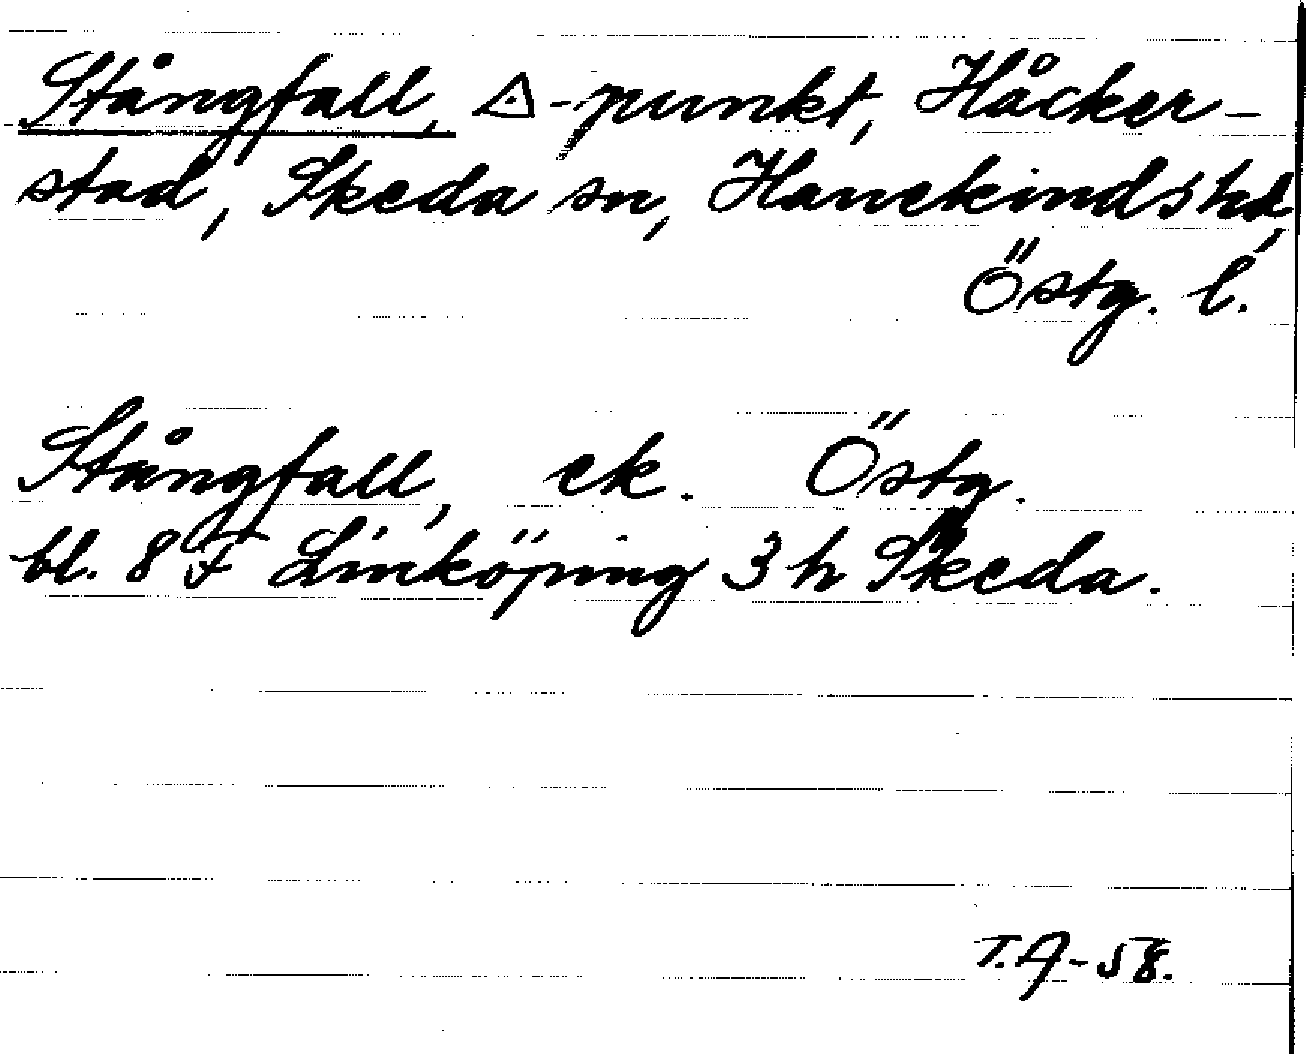 Stångfall, △-punkt, Håcker-
stad, Skeda sn, Hanekinds hd,
Östg. l.
Stångfall, ek. Östg.
bl. 8 F Linköping 3 h Skeda.
T.A-58.